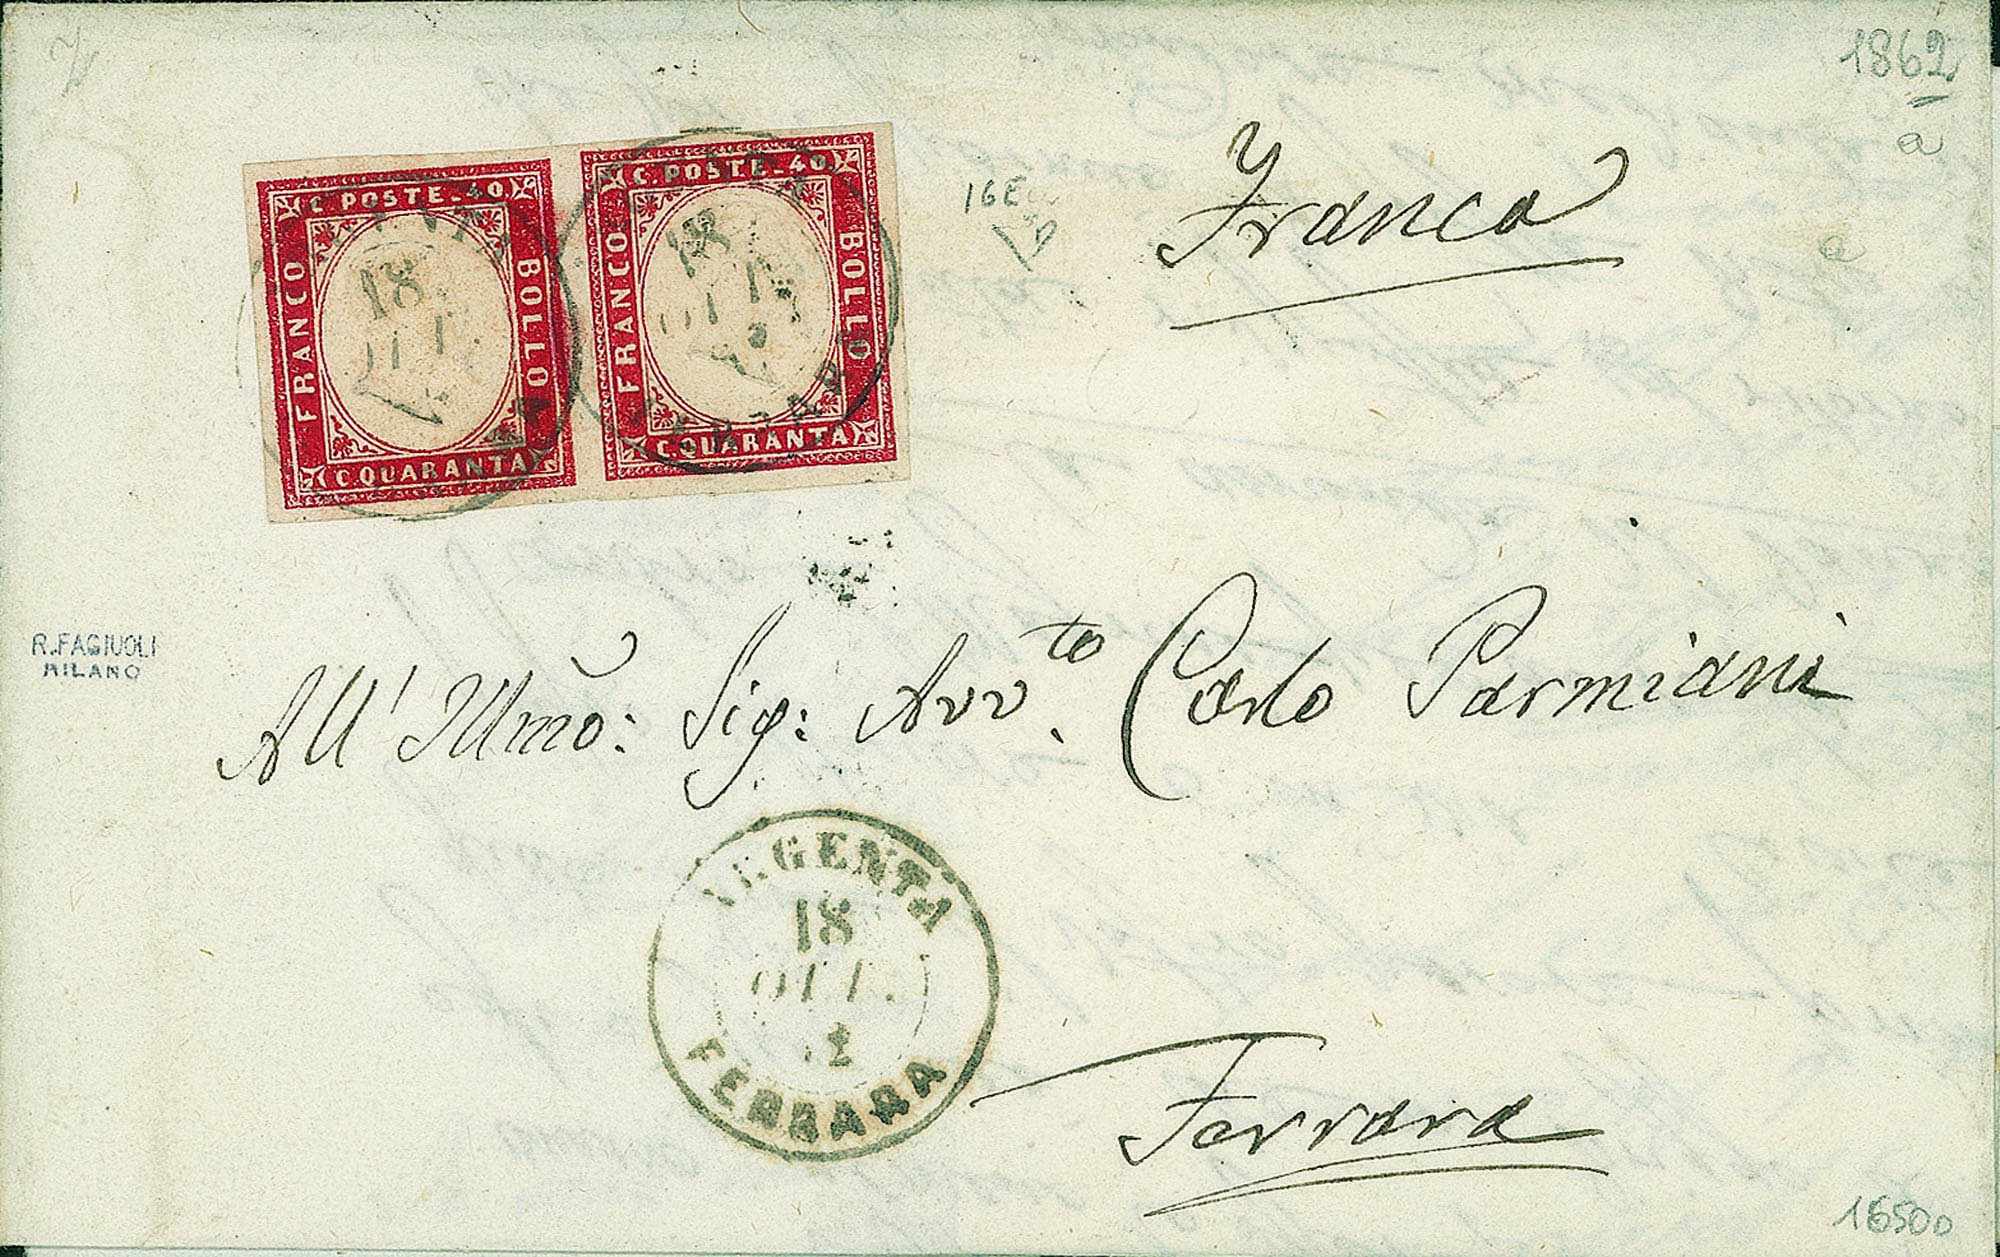 1862
a
C. POSTE. 40.
FRANCO
BOLLO
C. QUARANTA
18
C. POSTE. 40.
FRANCO
BOLLO
C. QUARANTA
18
16E
Franca
R. FAGIUOLI
MILANO
All' Illmo: Sig: Avv.to Carlo Parmiani
ARGENTA
18
OTT.
FERRARA
Ferrara
16500